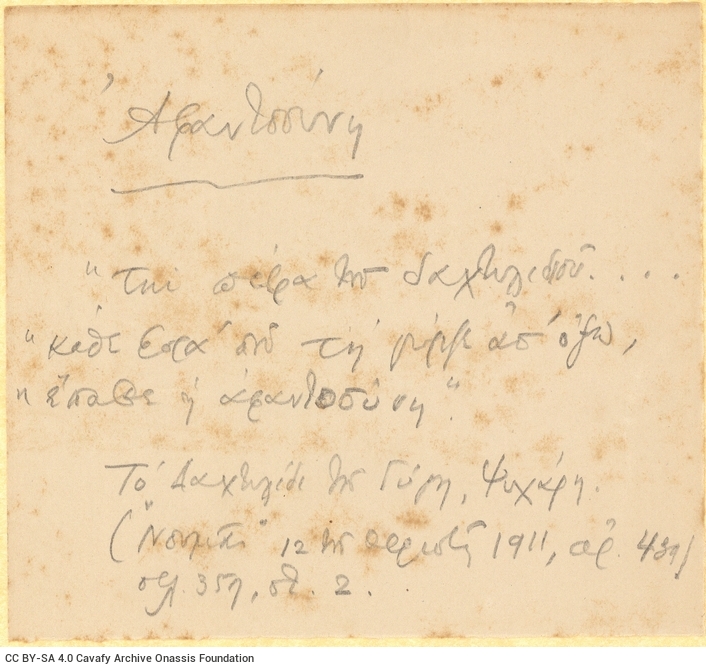 Ἀφαντοσύνη
"Τὴν πέτρα τοῦ δαχτυλιδιοῦ....
"κάθε φορὰ ποῦ τὴ γύριζε ἀπ' ὄξω,
"ἔπαθε ἡ ἀφαντοσύνη".
Τὸ Δαχτυλίδι τοῦ Γύγη, Ψυχάρη.
("Νουμᾶς" 12 τοῦ θεριστῆ 1911, ἀρ. 439)
σελ. 357, στ. 2.
CC BY-SA 4.0 Cavafy Archive Onassis Foundation